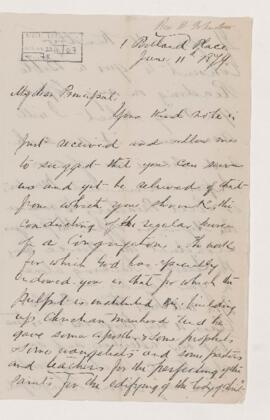 1 Bolland Place
June 11th 1879
My dear Principal
Your kind note is
just received and allow me
to suggest that you can serve
us and yet be relieved of that
from which you shrink, the
conducting of the regular service
of a Congregation. The work
for which God has specially
endowed you is that for which the
Pulpit is instituted the building
up Christian manhood and he
gave some apostles & some prophets
& some evangelists and some pastors
and teachers for the perfecting of the
saints, for the edifying of the body of Christ